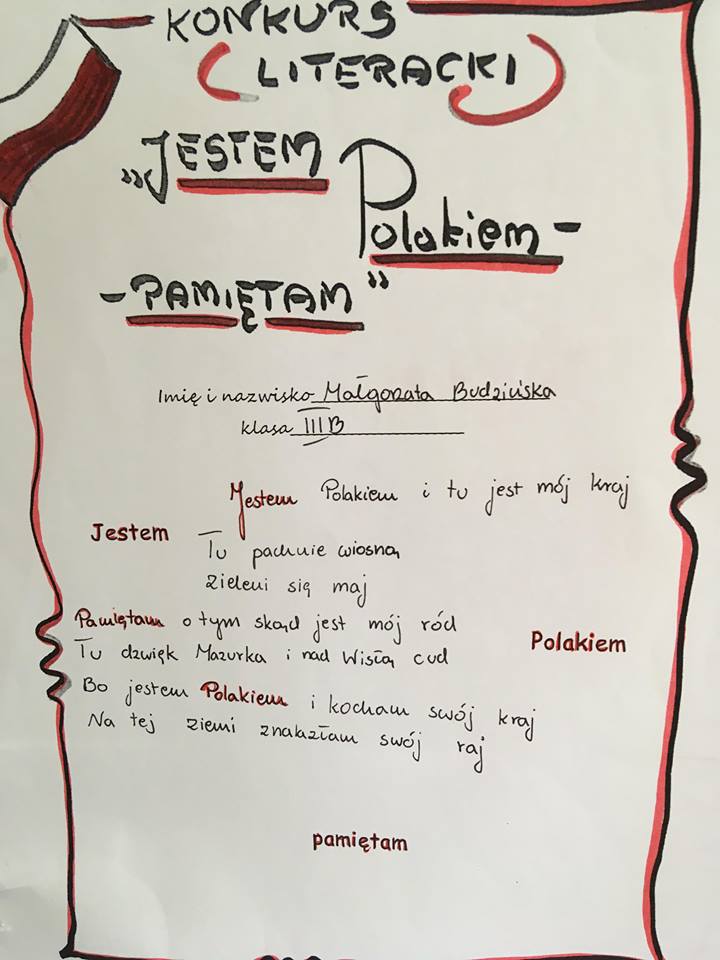 KONKURS
LITERACKI
„JESTEM
Polakiem -
- PAMIĘTAM”
Imię i nazwisko Małgorzata Budzińska
klasa III B
Jestem Polakiem i tu jest mój kraj
Jestem
Tu pachnie wiosną
zieleni się maj
Pamiętam o tym skąd jest mój ród
Polakiem
Tu dzwięk Mazurka i nad Wisłą cud
Bo jestem Polakiem i kocham swój kraj
Na tej ziemi znalazłam swój raj
pamiętam